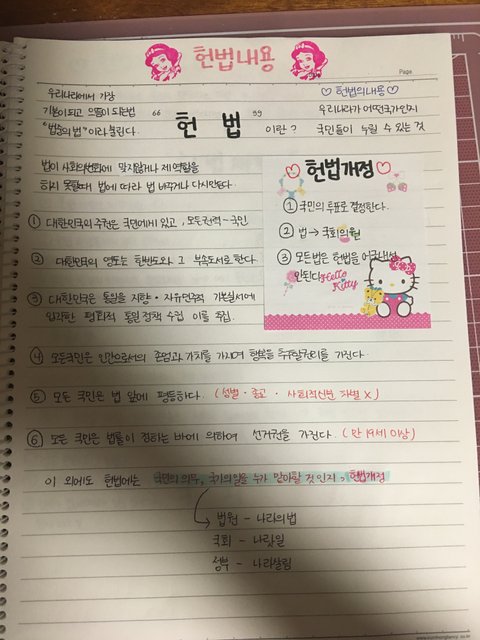 헌법내용
Page
우리나라에서 가장
기본이 되고 으뜸이 되는법
"법중의 법" 이라 불린다.
“ 헌 법 ”
이란?
♡ 헌법의내용 ♡
우리나라가 어떤국가인지
국민들이 누릴 수 있는 것
법이 사회의변화에 맞지않거나 제 역할을
하지 못할때 법에 따라 법 바꾸거나 다시만든다.
헌법개정
① 국민의 투표로 결정한다.
② 법 → 국회의원
③ 모든법은 헌법을 어긋나선
안된다
Hello
Kitty
① 대한민국의 주권은 국민에게 있고, 모든권력 - 국민
② 대한민국의 영토는 한반도와 그 부속도서로 한다.
③ 대한민국은 통일을 지향 · 자유민주적 기본질서에
입각한 평화적 통일 정책 수립 이를 추진.
④ 모든국민은 인간으로서의 존엄과 가치를 가지며 행복을 추구할권리를 가진다.
⑤ 모든 국민은 법 앞에 평등하다. (성별 · 종교 · 사회적신분 차별 X)
⑥ 모든 국민은 법률이 정하는 바에 의하여 선거권을 가진다. (만 19세 이상)
이 외에도 헌법에는 국민의 의무, 국가의일을 누가 맡아할 것인지, 헌법개정
법원 - 나라의법
국회 - 나랏일
정부 - 나라살림